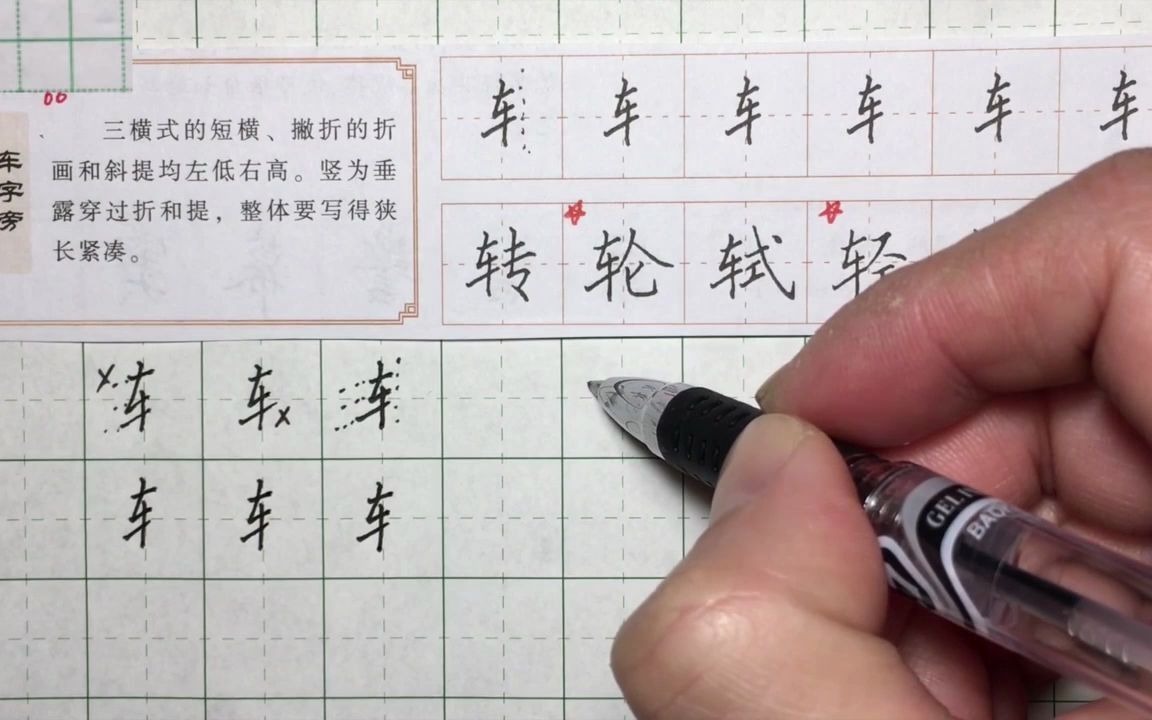 车字旁
三横式的短横、撇折的折
画和斜提均左低右高。竖为垂
露穿过折和提，整体要写得狭
长紧凑。
车 车 车 车 车 车
转 轮 轼 轻
车 车 车
车 车 车
GEL
BAO